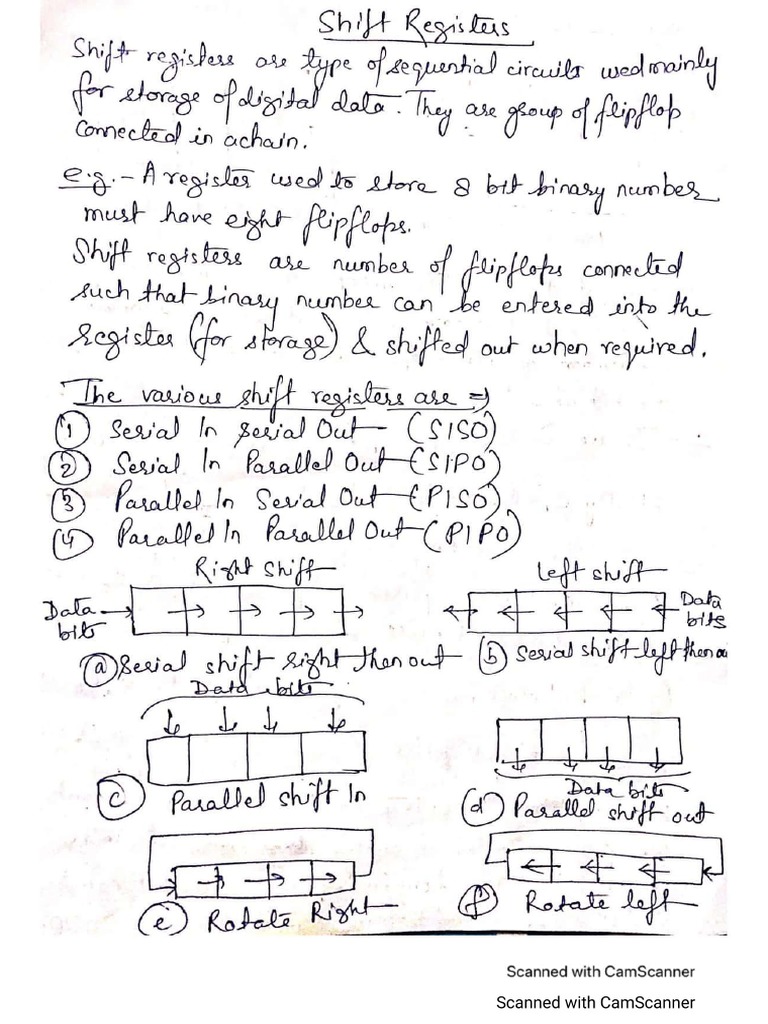 Shift Registers
Shift registers are type of sequential circuits used mainly
for storage of digital data. They are group of flipflop
connected in a chain.
e.g. - A register used to store 8 bit binary number
must have eight flipflops.
Shift registers are number of flipflops connected
such that binary number can be entered into the
register (for storage) & shifted out when required.
The various shift registers are ⇒
1 Serial In Serial Out - (SISO)
2 Serial In Parallel Out - (SIPO)
3 Parallel In Serial Out - (PISO)
4 Parallel In Parallel Out - (PIPO)
Right Shift
Left shift
Data
bits
Data
bits
(a) Serial shift right then out
(b) Serial shift left then o
Data bits
(c) Parallel shift In
Data bits
(d) Parallel shift out
(e) Rotate Right
(f) Rotate left
Scanned with CamScanner
Scanned with CamScanner